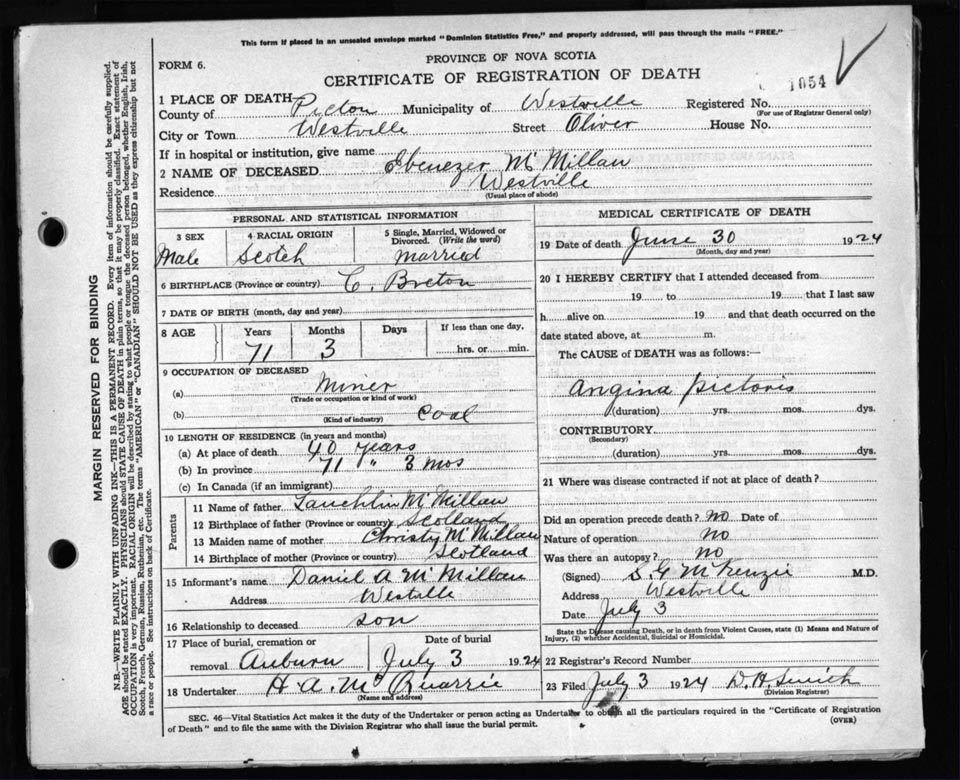 This form if placed in an unsealed envelope marked "Dominion Statistics Free," and properly addressed, will pass through the mails "FREE."
FORM 6.
PROVINCE OF NOVA SCOTIA
CERTIFICATE OF REGISTRATION OF DEATH
1054
1 PLACE OF DEATH
County of Pictou Municipality of Westville Registered No.
(For use of Registrar General only)
City or Town Westville Street Oliver House No.
If in hospital or institution, give name
2 NAME OF DECEASED Ebenezer McMillan
Residence Westville
(Usual place of abode)
PERSONAL AND STATISTICAL INFORMATION
3 SEX
Male
4 RACIAL ORIGIN
Scotch
5 Single, Married, Widowed or
Divorced. (Write the word)
Married
6 BIRTHPLACE (Province or country) C. Breton
7 DATE OF BIRTH (month, day and year)
8 AGE Years Months Days If less than one day.
71 3 hrs. or min.
9 OCCUPATION OF DECEASED
(a) Miner
(Trade or occupation or kind of work)
(b) Coal
(Kind of industry)
10 LENGTH OF RESIDENCE (in years and months)
(a) At place of death 40 years
(b) In province 71 " 3 mos
(c) In Canada (if an immigrant)
Parents
11 Name of father Lauchlin McMillan
12 Birthplace of father (Province or country) Scotland
13 Maiden name of mother Christy McMillan
14 Birthplace of mother (Province or country) Scotland
15 Informant's name Daniel A McMillan
Address Westville
16 Relationship to deceased son
17 Place of burial, cremation or
removal Auburn
Date of burial
July 3 1924
18 Undertaker H. A. McQuarrie
(Name and address)
MEDICAL CERTIFICATE OF DEATH
19 Date of death June 30 1924
(Month, day and year)
20 I HEREBY CERTIFY that I attended deceased from
19 to 19 that I last saw
h alive on 19 and that death occurred on the
date stated above, at m.
The CAUSE of DEATH was as follows:—
Angina pictoris
(duration) yrs. mos. dys.
CONTRIBUTORY
(Secondary)
(duration) yrs. mos. dys.
21 Where was disease contracted if not at place of death?
Did an operation precede death? no Date of
Nature of operation no
Was there an autopsy? no
(Signed) S. G McKenzie M.D.
Address Westville
Date July 3
State the Disease causing Death, or in death from Violent Causes, state (1) Means and Nature of
Injury, (2) whether Accidental, Suicidal or Homicidal.
22 Registrar's Record Number
23 Filed July 3 1924 D. H. Smith
(Division Registrar)
SEC. 46—Vital Statistics Act makes it the duty of the Undertaker or person acting as Undertaker to obtain all the particulars required in the "Certificate of Registration
of Death" and to file the same with the Division Registrar who shall issue the burial permit. (OVER)
MARGIN RESERVED FOR BINDING
N.B.—WRITE PLAINLY WITH UNFADING INK—THIS IS A PERMANENT RECORD. Every item of information should be carefully supplied.
AGE should be stated EXACTLY. PHYSICIANS should STATE CAUSE OF DEATH in plain terms, so that it may be properly classified. Exact statement of
OCCUPATION is very important. RACIAL ORIGIN will be described by stating to what people or tongue the deceased person belonged, whether English, Irish,
Scotch, French, German, Russian, Ruthenian, etc. The terms "AMERICAN" or "CANADIAN" SHOULD NOT BE USED as they express citizenship but not
a race or people. See instructions on back of Certificate.